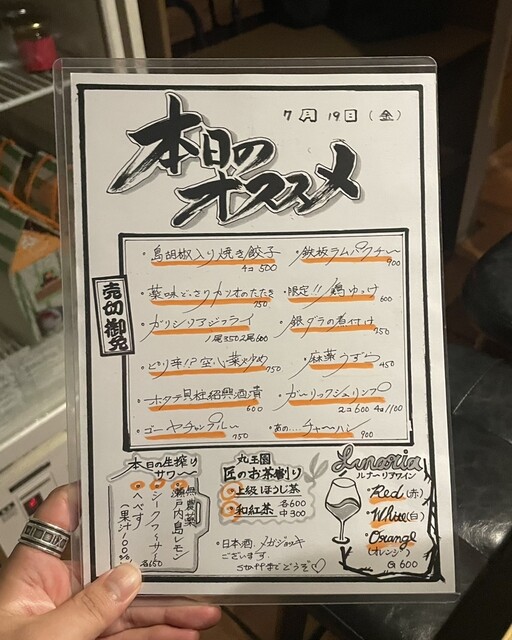 7月19日(金)
本日の
オススメ
売切御免
・島胡椒入り焼き餃子
4コ 500
・鉄板ラムパクチー
900
・薬味どっさりカツオのたたき
750
・限定!!鶏ゆっけ
600
・ガリシリアジフライ
1尾350 2尾600
・銀ダラの煮付け
750
・ピリ辛!?空心菜炒め
750
・麻薬うずら
450
・ホタテ貝柱紹興酒漬
600
・ガーリックシュリンプ
2コ600 4コ1100
・ゴーヤチャンプルー
750
・あの....チャーハン
900
本日の生搾り
サワー
無農薬
・瀬戸内島レモン
・シークワーサー
・へべす
果汁100%
各650
丸玉園
匠のお茶割り
・上級ほうじ茶
・和紅茶
各600
中300
・日本酒、メガジョッキ
ございます。
staffまでどうぞ♡
Lunaria
ルナーリアワイン
・Red(赤)
・White(白)
・Orange
(オレンジ)
G 600